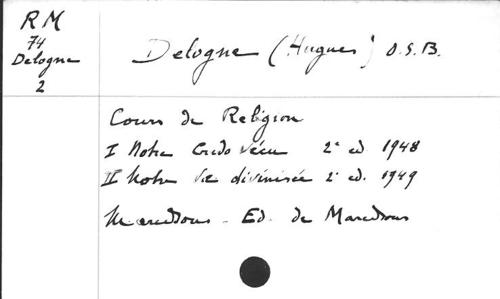 RM
74
Delogne
2
Delogne (Hugues) O.S.B.
Cours de Religion
I Notre Credo vécu 2e ed 1948
II Notre vie divinisée 2e ed. 1949
Maredsous - Ed. de Maredsous